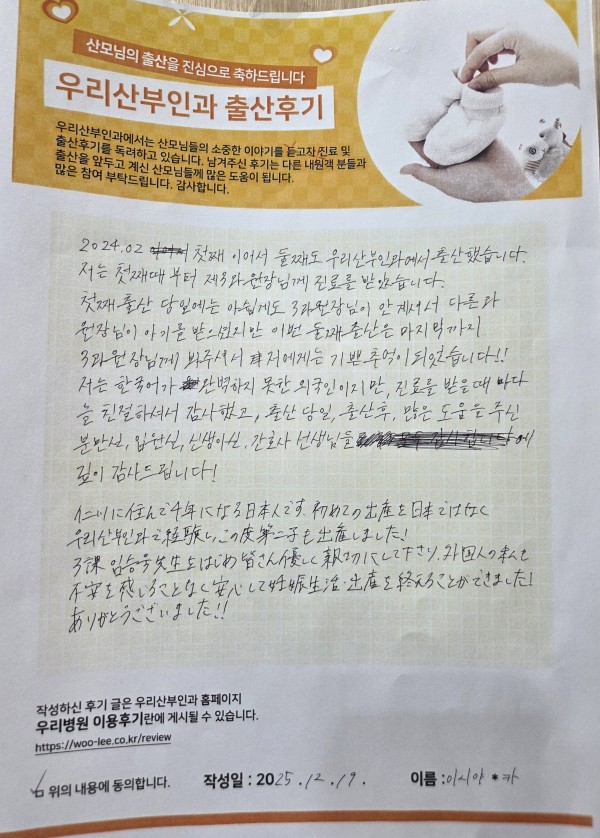 산모님의 출산을 진심으로 축하드립니다
우리산부인과 출산후기
우리산부인과에서는 산모님들의 소중한 이야기를 듣고자 진료 및
출산후기를 독려하고 있습니다. 남겨주신 후기는 다른 내원객 분들과
출산을 앞두고 계신 산모님들께 많은 도움이 됩니다.
많은 참여 부탁드립니다. 감사합니다.
2024.02 첫째 이어서 둘째도 우리산부인과에서 출산했습니다.
저는 첫째때 부터 제3과 원장님께 진료를 받았습니다.
첫째 출산 당일에는 아쉽게도 3과원장님이 안계셔서 다른과
원장님이 아기를 받으셨지만 이번 둘째 출산은 마지막까지
3과 원장님께 봐주셔서 저에게는 기쁜추억이 되엇습니다!!
저는 한국어가 완벽하지 못한 외국인이지만, 진료를 받을때 마다
늘 친절하셔서 감사했고, 출산 당일, 출산후, 많은 도움을 주신
분만실, 입원실, 신생아실, 간호사 선생님들에
깊이 감사드립니다!
仁川に住んで4年になる日本人です。初めての出産を日本ではなく
우리산부인과で経験し、この度第二子も出産しました！
3課 임승욱先生をはじめ皆さん優しく親切にして下さり、外国人の本人も
不安を感じることなく安心して妊娠生活・出産を終えることができました！
ありがとうございました!!
작성하신 후기 글은 우리산부인과 홈페이지
우리병원 이용후기란에 게시될 수 있습니다.
https://woo-lee.co.kr/review
위의 내용에 동의합니다. 작성일 : 2025.12.19. 이름 : 이시야*카